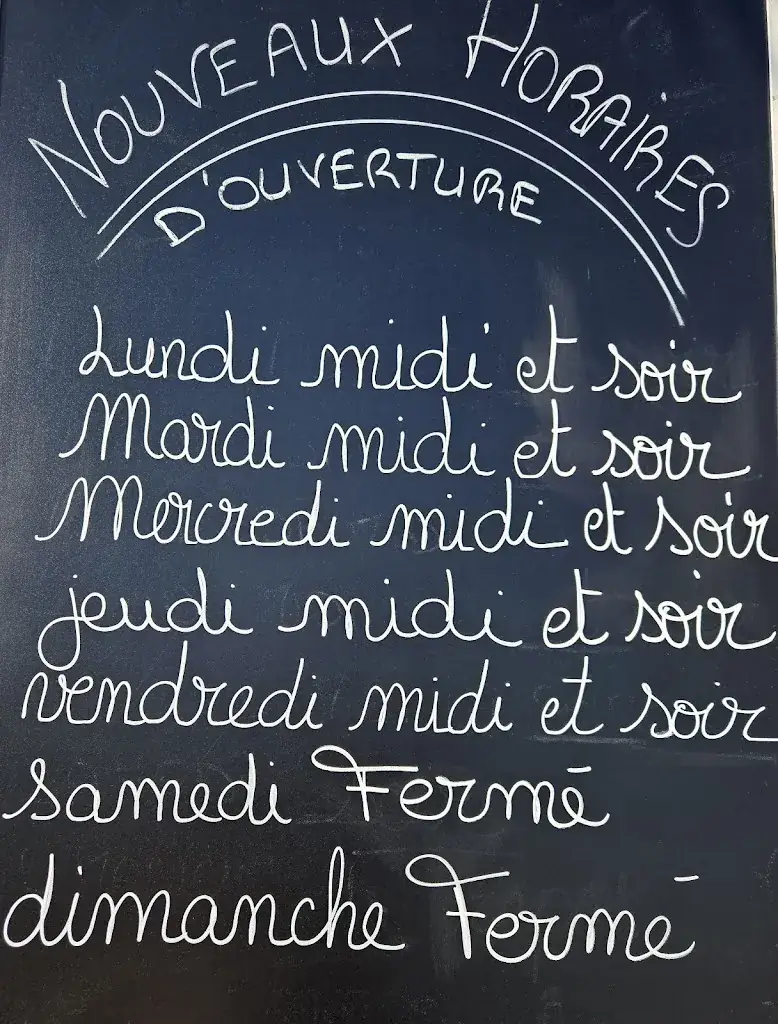 NOUVEAUX HORAIRES
D'OUVERTURE
Lundi midi et soir
Mardi midi et soir
Mercredi midi et soir
jeudi midi et soir
vendredi midi et soir
samedi Fermé
dimanche Fermé